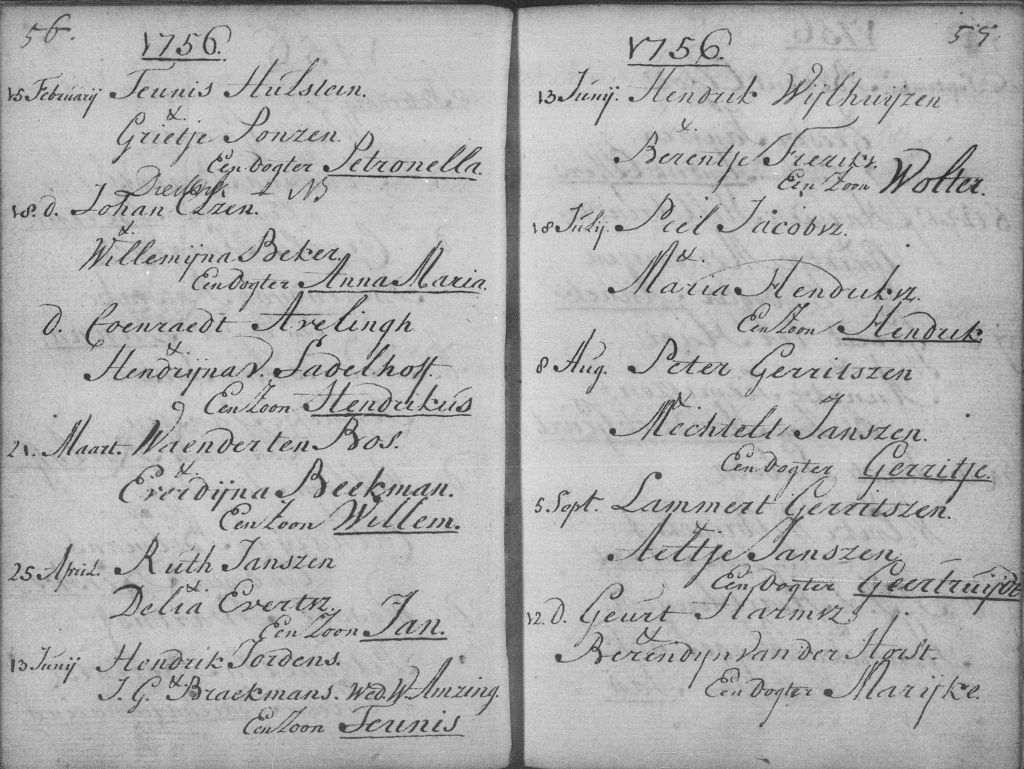 56.
1756.
15 Februarij Teunis Hulstein.
&
Grietje Sonzen.
Een Dogter Petronella.
18. d. Johan Elzen.
&
Willemijna Beker
Een Dogter Anna Maria.
d. Coenraedt Avelingh
&
Hendrijna v. Sadelhoff
Een Zoon Hendrikus
21. Maart. Waender ten Bos.
&
Everdijna Beekman.
Een Zoon Willem.
25 April. Ruth Janszen
&
Delia Evertz.
Een Zoon Jan.
13 Junij Hendrik Jordens.
&
J. G. Braekmans. Wed. W. Amzing.
Een Zoon Teunis
55.
1756.
13 Junij. Hendrik Wijlhuijzen
&
Berentje Frerikz.
Een Zoon Wolter.
18 Julij. Peel Jacobz.
&
Maria Hendrikz.
Een Zoon Hendrik
8 Aug. Peter Gerritszen
&
Mechtelt Janszen.
Een Dogter Gerritje.
5. Sept. Lammert Gerritszen.
Aeltje Janszen
Een Dogter Geertruijdt
12. D. Geurt Harmz.
&
Berendyn van der Horst.
Een Dogter Marijke.